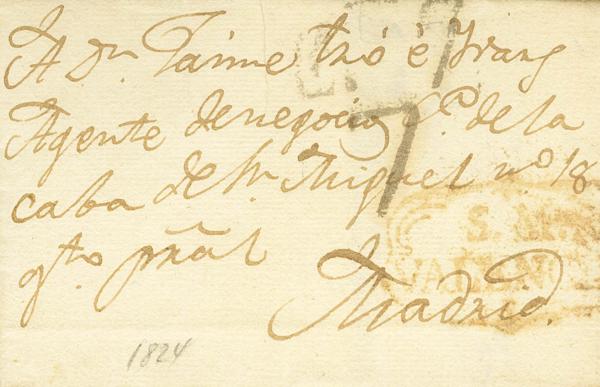 A Dn. Jaime
Agente de negocios Ce. de la
caba de Sn. Miguel no. 18
qto. pral
Madrid.
S. M
VALENC
1824